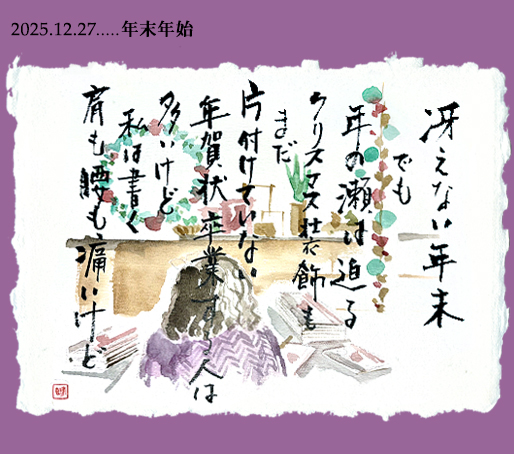 2025.12.27.....年末年始
冴えない年末
でも
年の瀬は迫る
クリスマス装飾も
まだ
片付けていない
年賀状卒業する人は
多いけど
私は書く
肩も腰も痛いけど